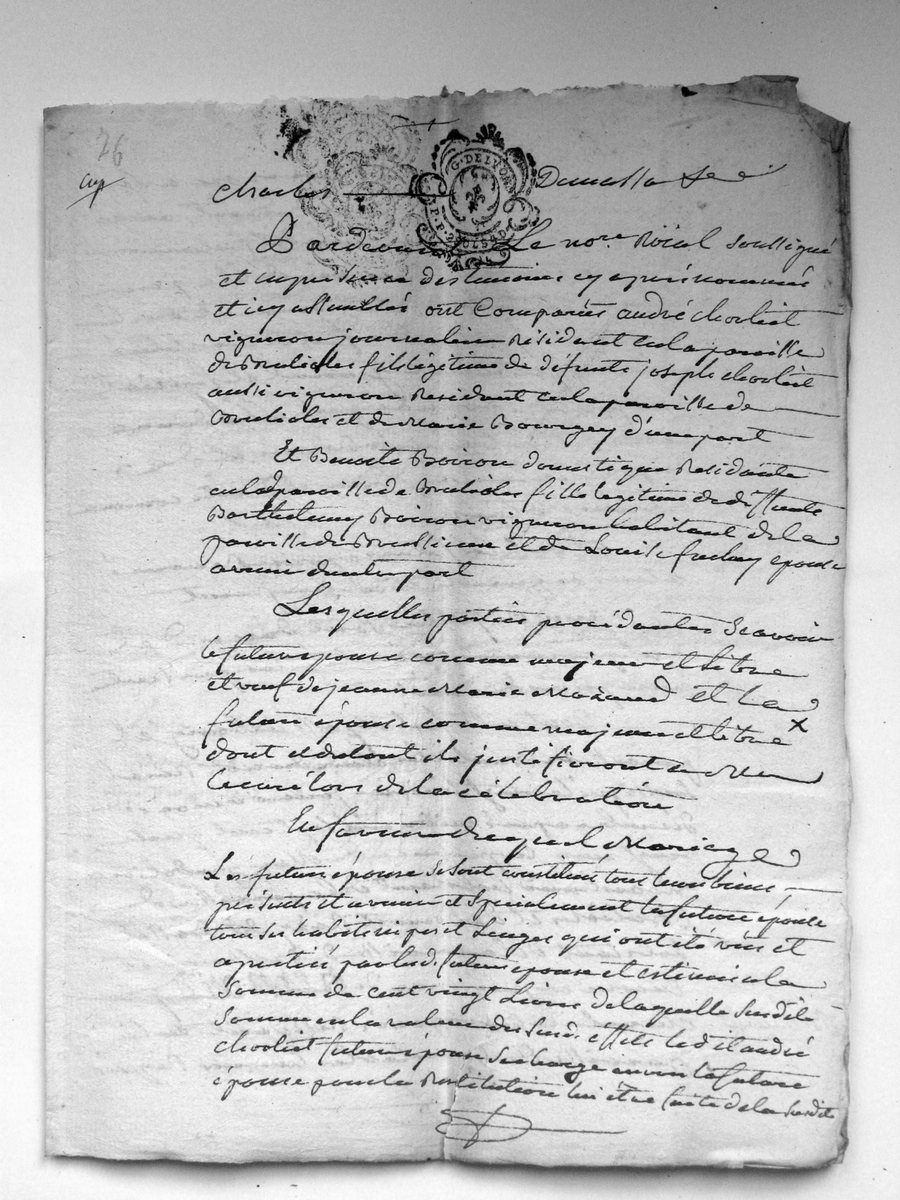 26
G. DE LYON
charles Dumas
Pardevant Le nore. Roial soussigné
et en presence des temoins cy aprés nommés
et cy assemblés ont Comparus andré chorliet
vigneron journalier Résidant en la paroisse
de fils légitime de défunts joseph chorliet
aussi vigneron Residant en la paroisse de
et de Marie Bourgey d'une part
Et Benoite Boiron domestique Residante
en lad paroisse de fille legitime de deffunts
Barthelemy Boiron vigneron habitant de la
paroisse de et de Louise epouse
avenir d'autre part
Lesquelles parties procédantes Scavoir
le futur epoux comme majeur et libre
et veuf de jeanne Marie et La
future épouse comme majeure et libre x
dont et du tout ils justifieront a Mr
le curé lors de la célébration
En faveur duquel Mariage
Les futurs époux se sont constitués tous leurs biens
présents et avenir et spécialement la future épouse
tous ses habits nipes et Linges qui ont été vus et
apretiés par led. futur epoux et estimés a la
somme de cent vingt Livres de laquelle susdite
somme ou la valeur des susd. effets ledit andré
chorliet futur époux se charge envers la future
épouse pour la Restitution lui etre faite de la susdite